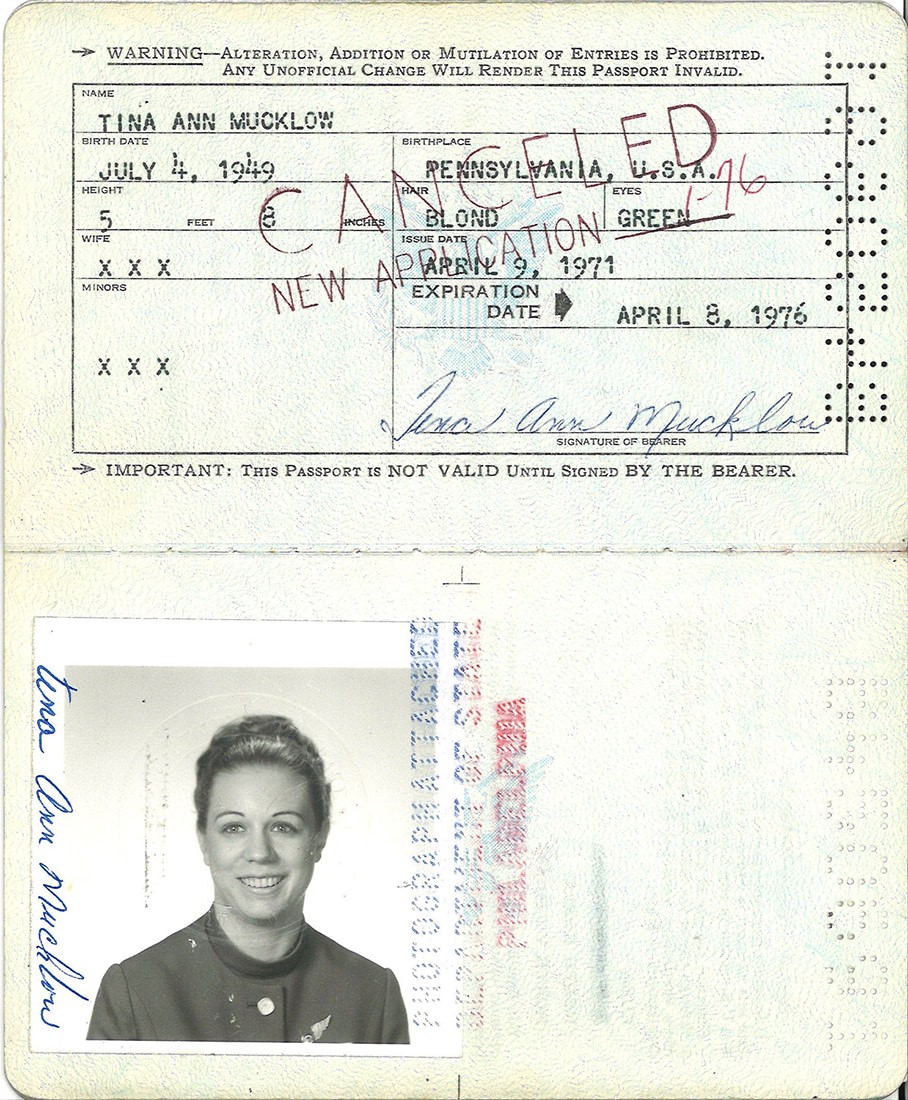 → WARNING—ALTERATION, ADDITION OR MUTILATION OF ENTRIES IS PROHIBITED.
ANY UNOFFICIAL CHANGE WILL RENDER THIS PASSPORT INVALID.
NAME
TINA ANN MUCKLOW
BIRTH DATE BIRTHPLACE
JULY 4, 1949 PENNSYLVANIA, U.S.A.
HEIGHT HAIR EYES
5 FEET 8 INCHES BLOND GREEN
WIFE ISSUE DATE
X X X APRIL 9, 1971
MINORS
EXPIRATION
DATE APRIL 8, 1976
X X X
CANCELED
1-76
NEW APPLICATION
Tina Ann Mucklow
SIGNATURE OF BEARER
→ IMPORTANT: THIS PASSPORT IS NOT VALID UNTIL SIGNED BY THE BEARER.
Tina Ann Mucklow
PHOTOGRAPH ATTACHED
PHILADELPHIA